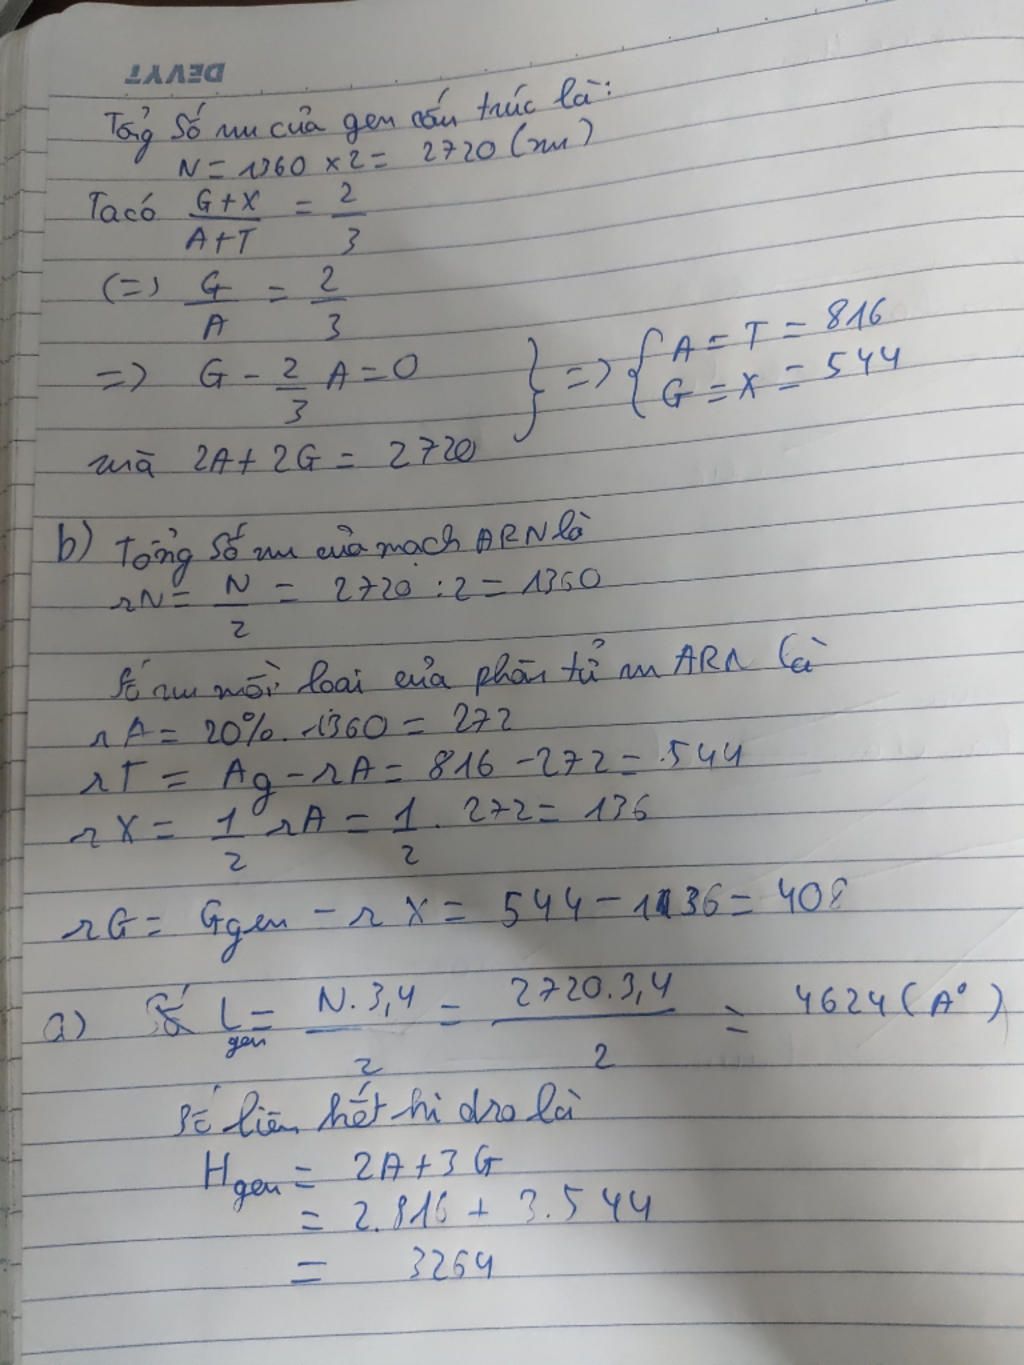 DEVYT
Tổng số nu của gen cấu trúc là:
N = 1360 × 2 = 2720 (nu)
Ta có G+X / A+T = 2/3
(=) G/A = 2/3
=> G - 2/3 A = 0 } => { A = T = 816
G = X = 544
mà 2A + 2G = 2720
b) Tổng số nu của mạch ARN là
rN = N/2 = 2720 : 2 = 1360
Số nu mỗi loại của phân tử mARN là
rA = 20%. 1360 = 272
rT = Ag - rA = 816 - 272 = 544
rX = 1/2 rA = 1/2 . 272 = 136
rG = Ggen - rX = 544 - 136 = 408
a) L gen = N. 3,4 / 2 = 2720. 3,4 / 2 = 4624 (A°)
Số liên kết hi dro là
Hgen = 2A + 3G
= 2. 816 + 3. 544
= 3264